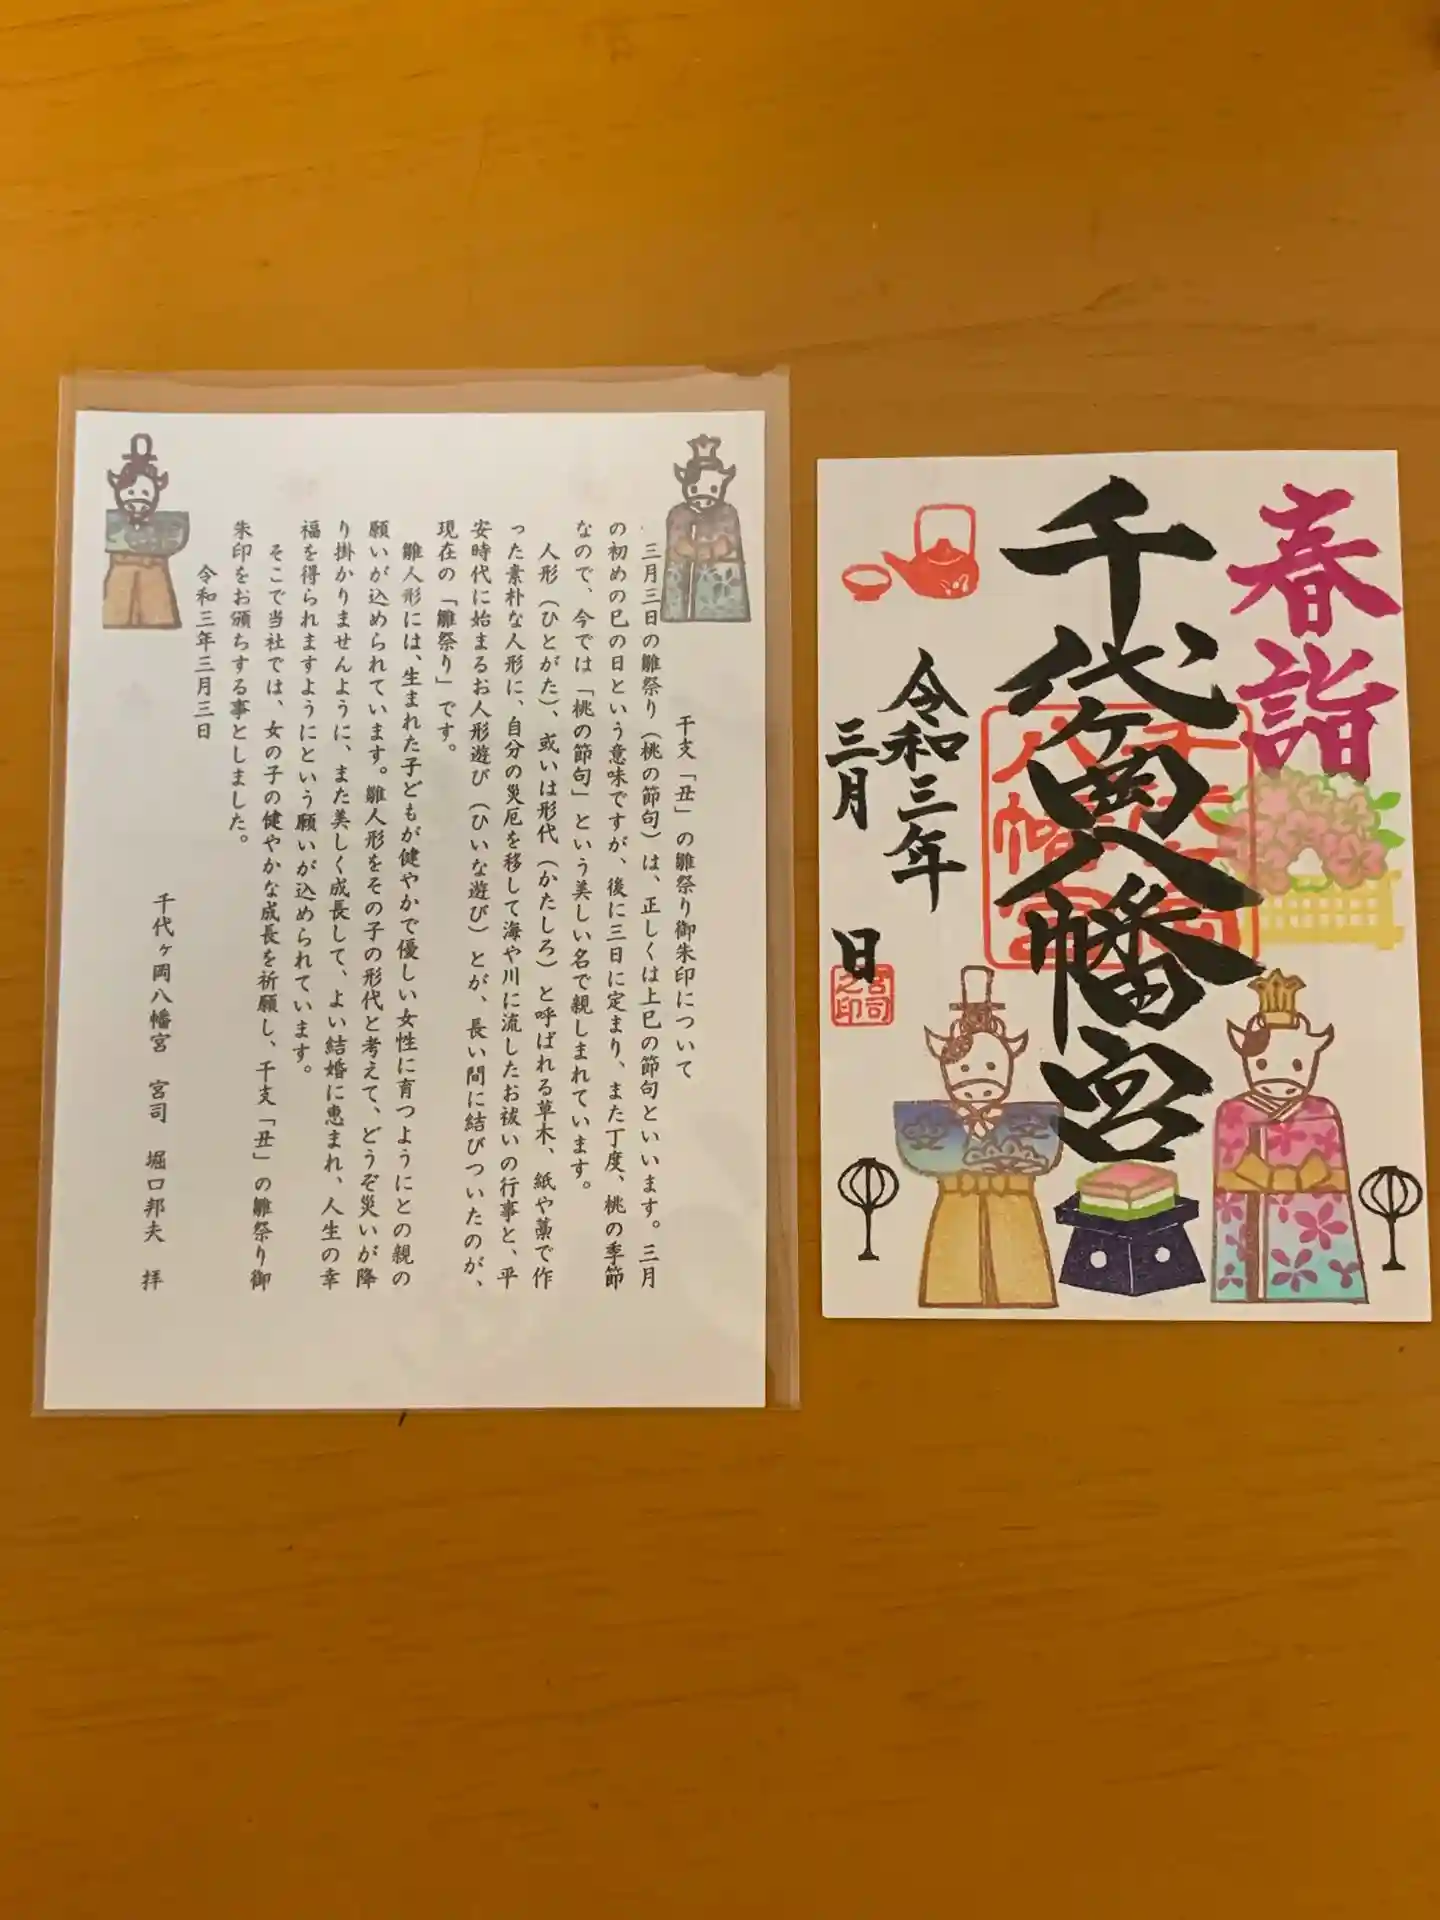 干支「丑」の雛祭り御朱印について
三月三日の雛祭り(桃の節句)は、正しくは上巳の節句といいます。三月
の初めの巳の日という意味ですが、後に三日に定まり、また丁度、桃の季節
なので、今では「桃の節句」という美しい名で親しまれています。
人形(ひとがた)、或いは形代(かたしろ)と呼ばれる草木、紙や藁で作
った素朴な人形に、自分の災厄を移して海や川に流したお祓いの行事と、平
安時代に始まるお人形遊び(ひいな遊び)とが、長い間に結びついたのが、
現在の「雛祭り」です。
雛人形には、生まれた子どもが健やかで優しい女性に育つようにとの親の
願いが込められています。雛人形をその子の形代と考えて、どうぞ災いが降
り掛かりませんように、また美しく成長して、よい結婚に恵まれ、人生の幸
福を得られますようにという願いが込められています。
そこで当社では、女の子の健やかな成長を祈願し、干支「丑」の雛祭り御
朱印をお頒ちする事としました。
令和三年三月三日
千代ヶ岡八幡宮 宮司 堀口邦夫 拝
春詣
千代ヶ岡八幡宮
令和三年
三月 日
宮司
之印